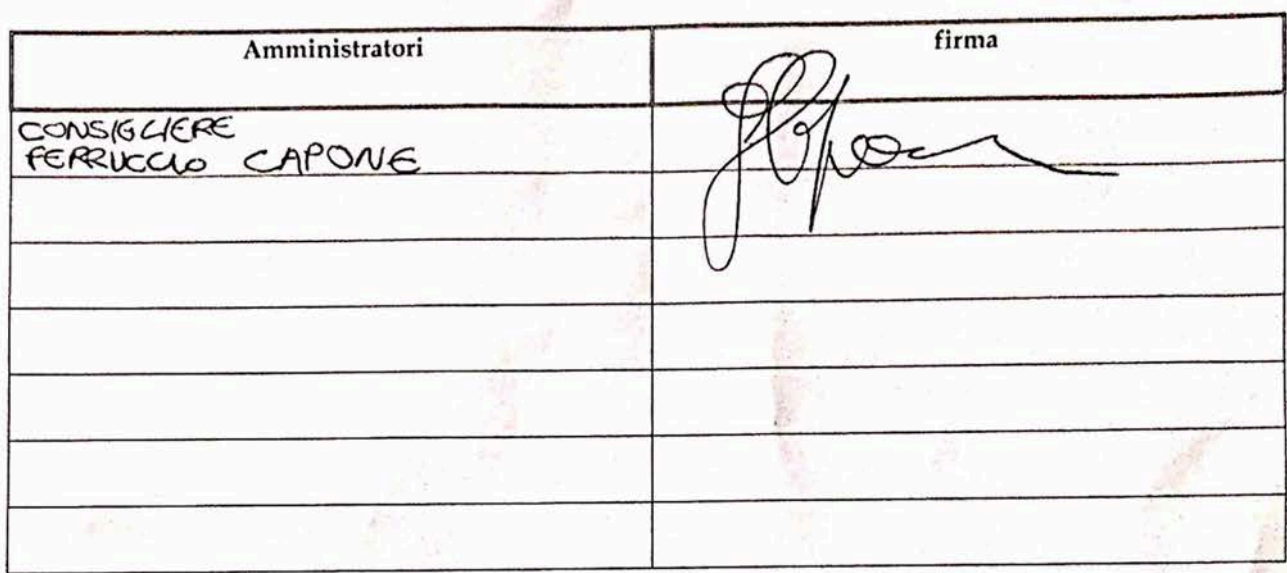 Amministratori
firma
CONSIGLIERE
FERRUCCIO CAPONE